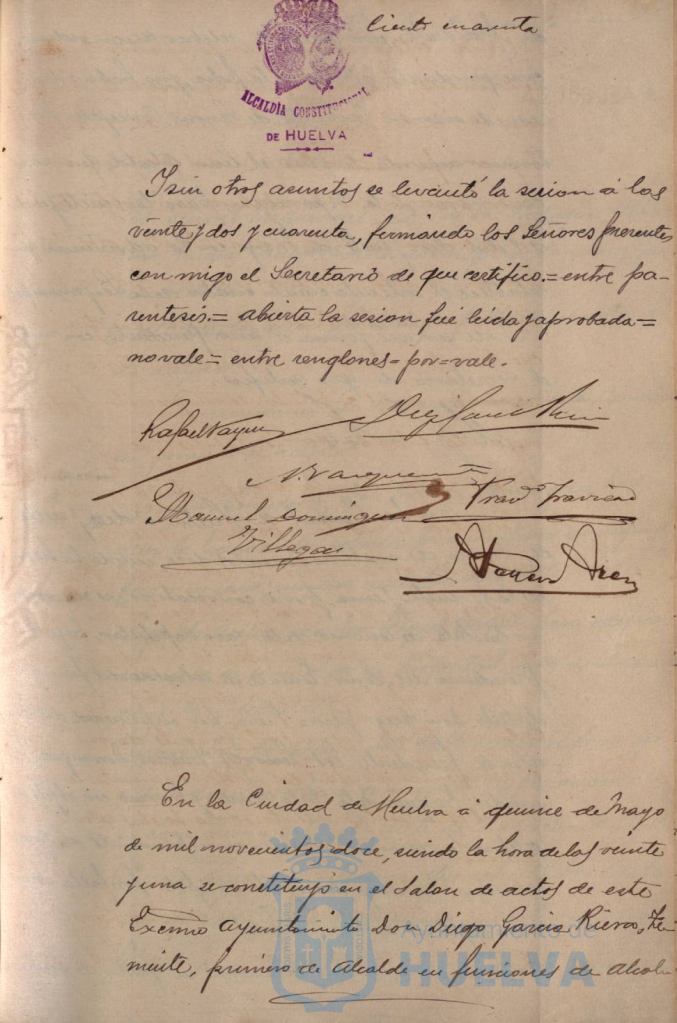 Ciento cuarenta
ALCALDÍA CONSTITUCIONAL
DE HUELVA
Y sin otros asuntos se levantó la sesion á las
veinte y dos y cuarenta, firmando los Señores presentes
con migo el Secretario de que certifico.=entre pa-
rentesis.= abierta la sesion fué leida y aprobada=
no vale= entre renglones= por=vale.
Rafael Vazquez
Manuel Dominguez
Villegas
En la Ciudad de Huelva á quince de Mayo
de mil novecientos doce, siendo la hora de las veinte
y una se constituyó en el Salon de actos de este
Excmo Ayuntamiento Don Diego Garcia Riero, Te-
niente, primero de Alcalde en funciones de Alcal-
Ayuntamiento de
HUELVA